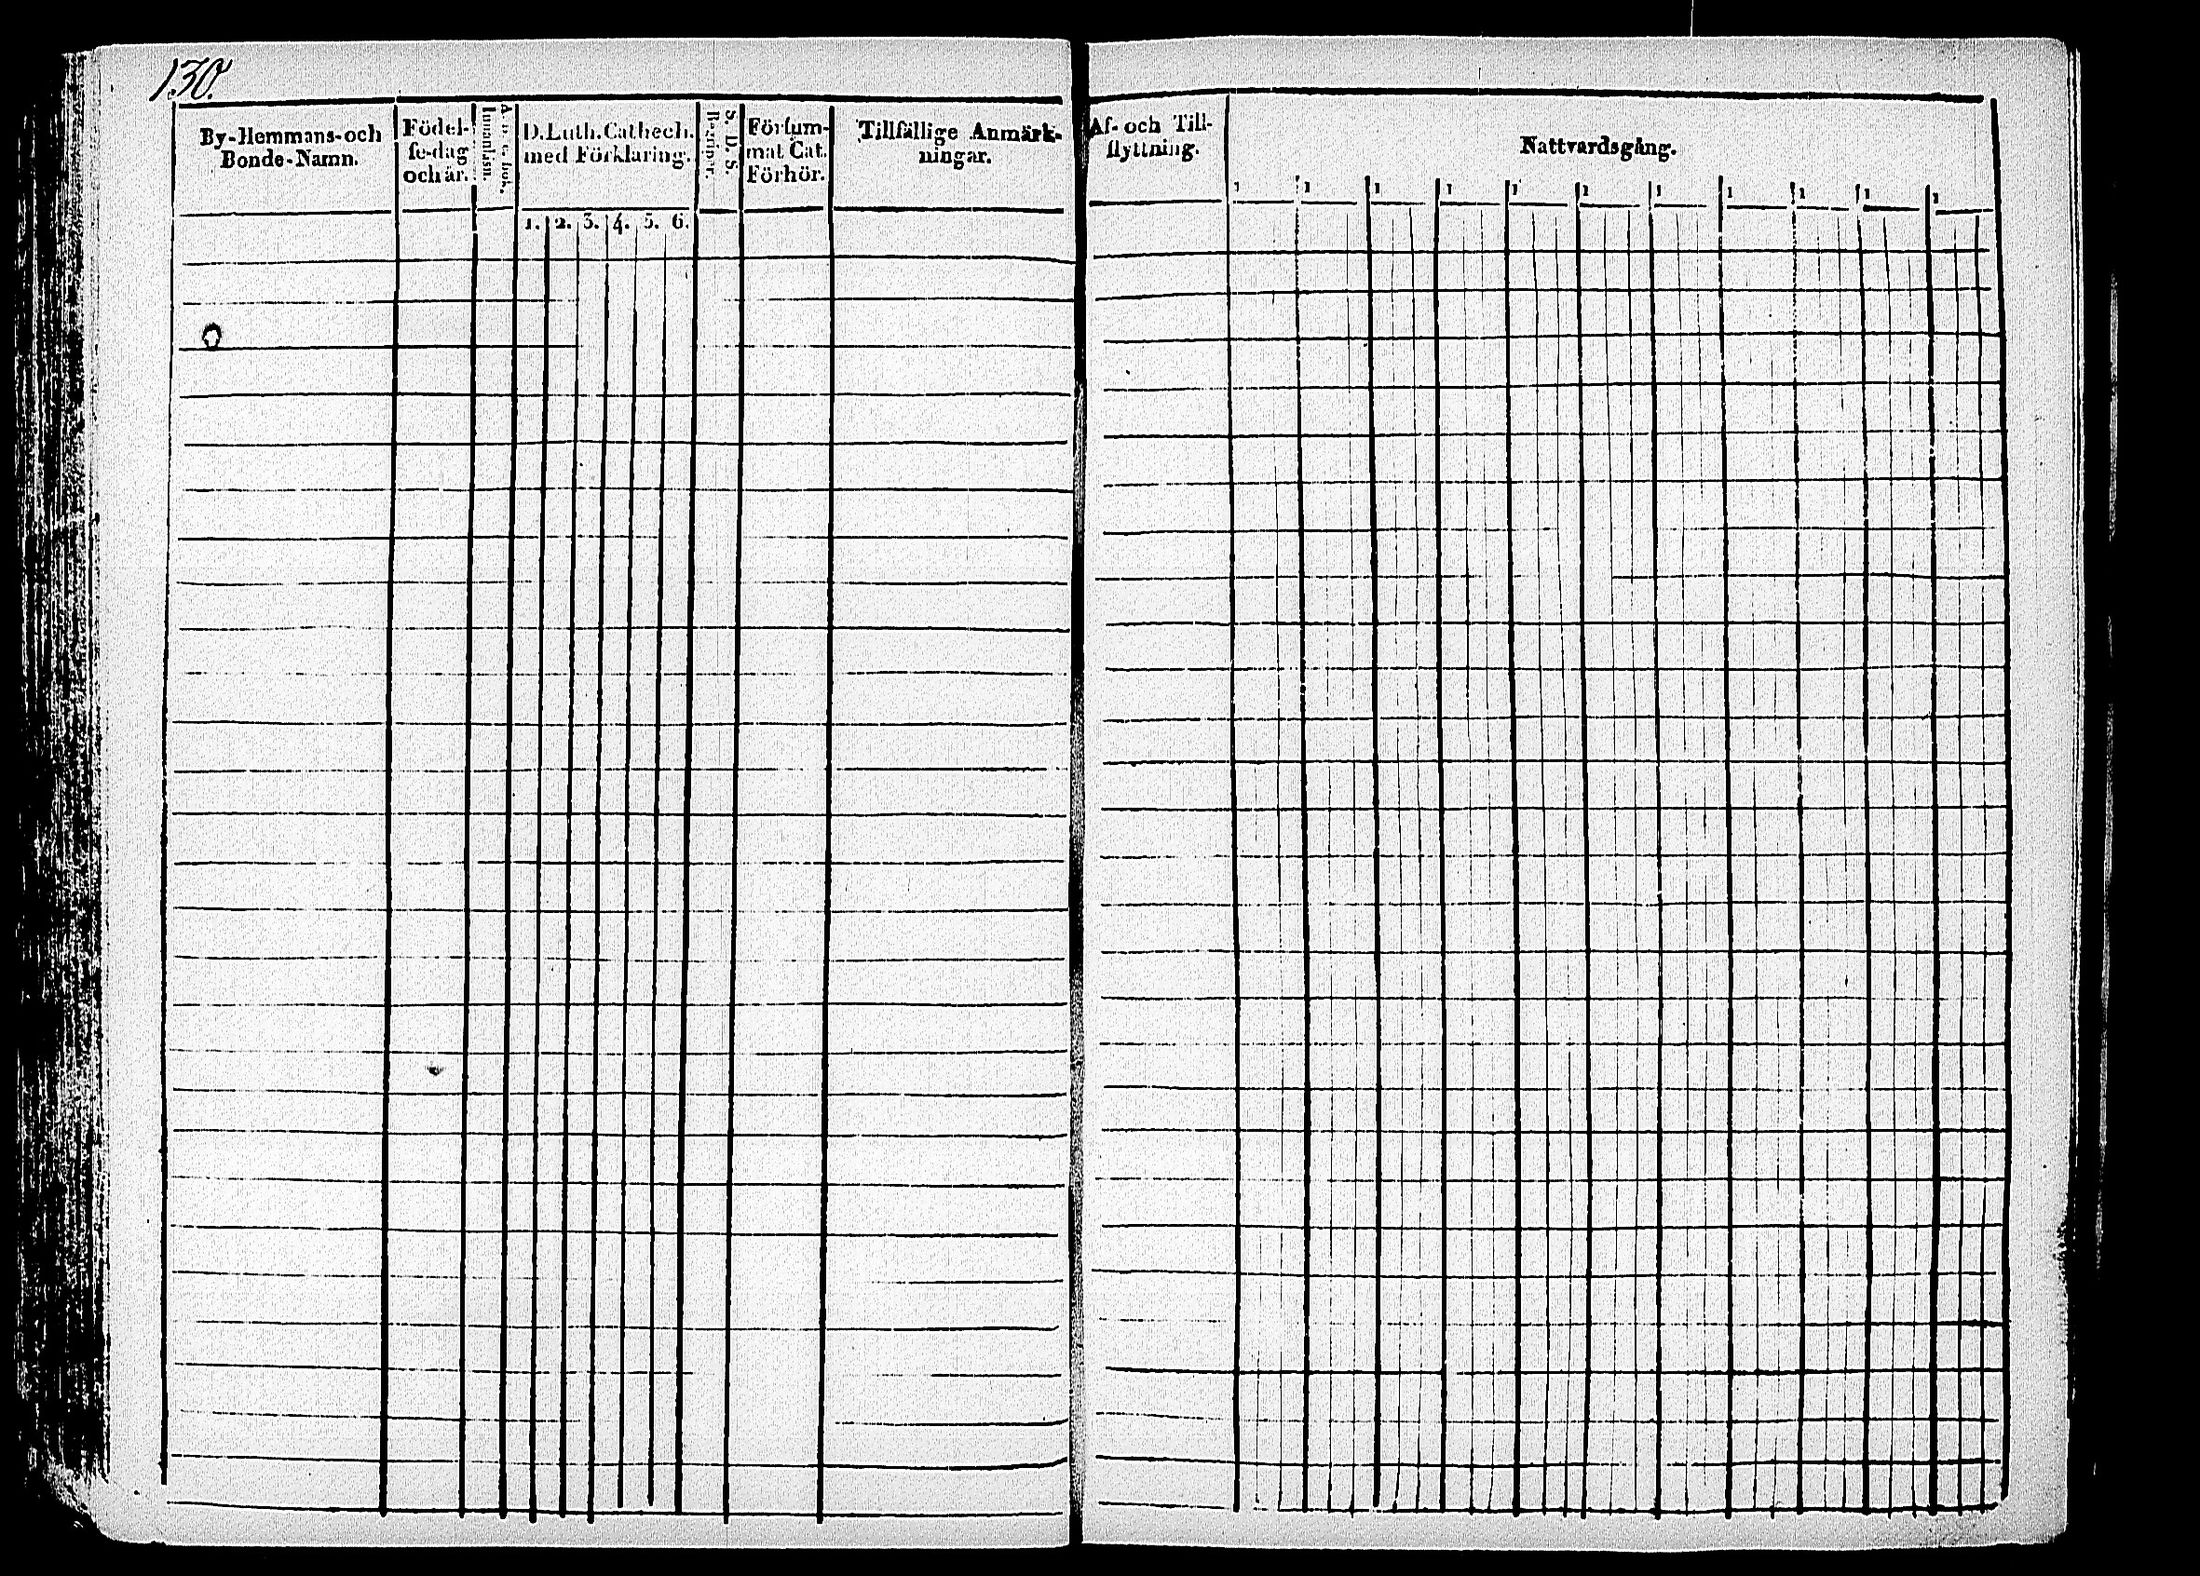 130.
By-Hemmans-och
Bonde-Namn.
Födel-
se-dag
och år.
A. b. c. bok.
Innanläsn.
D. Luth. Cathech.
med Förklaring.
1. 2. 3. 4. 5. 6.
S. D. S.
Begrip:r.
Försum-
mat Cat.
Förhör.
Tillfällige Anmärk-
ningar.
Af- och Till-
flyttning.
Nattvardsgång.
1 1 1 1 1 1 1 1 1 1 1